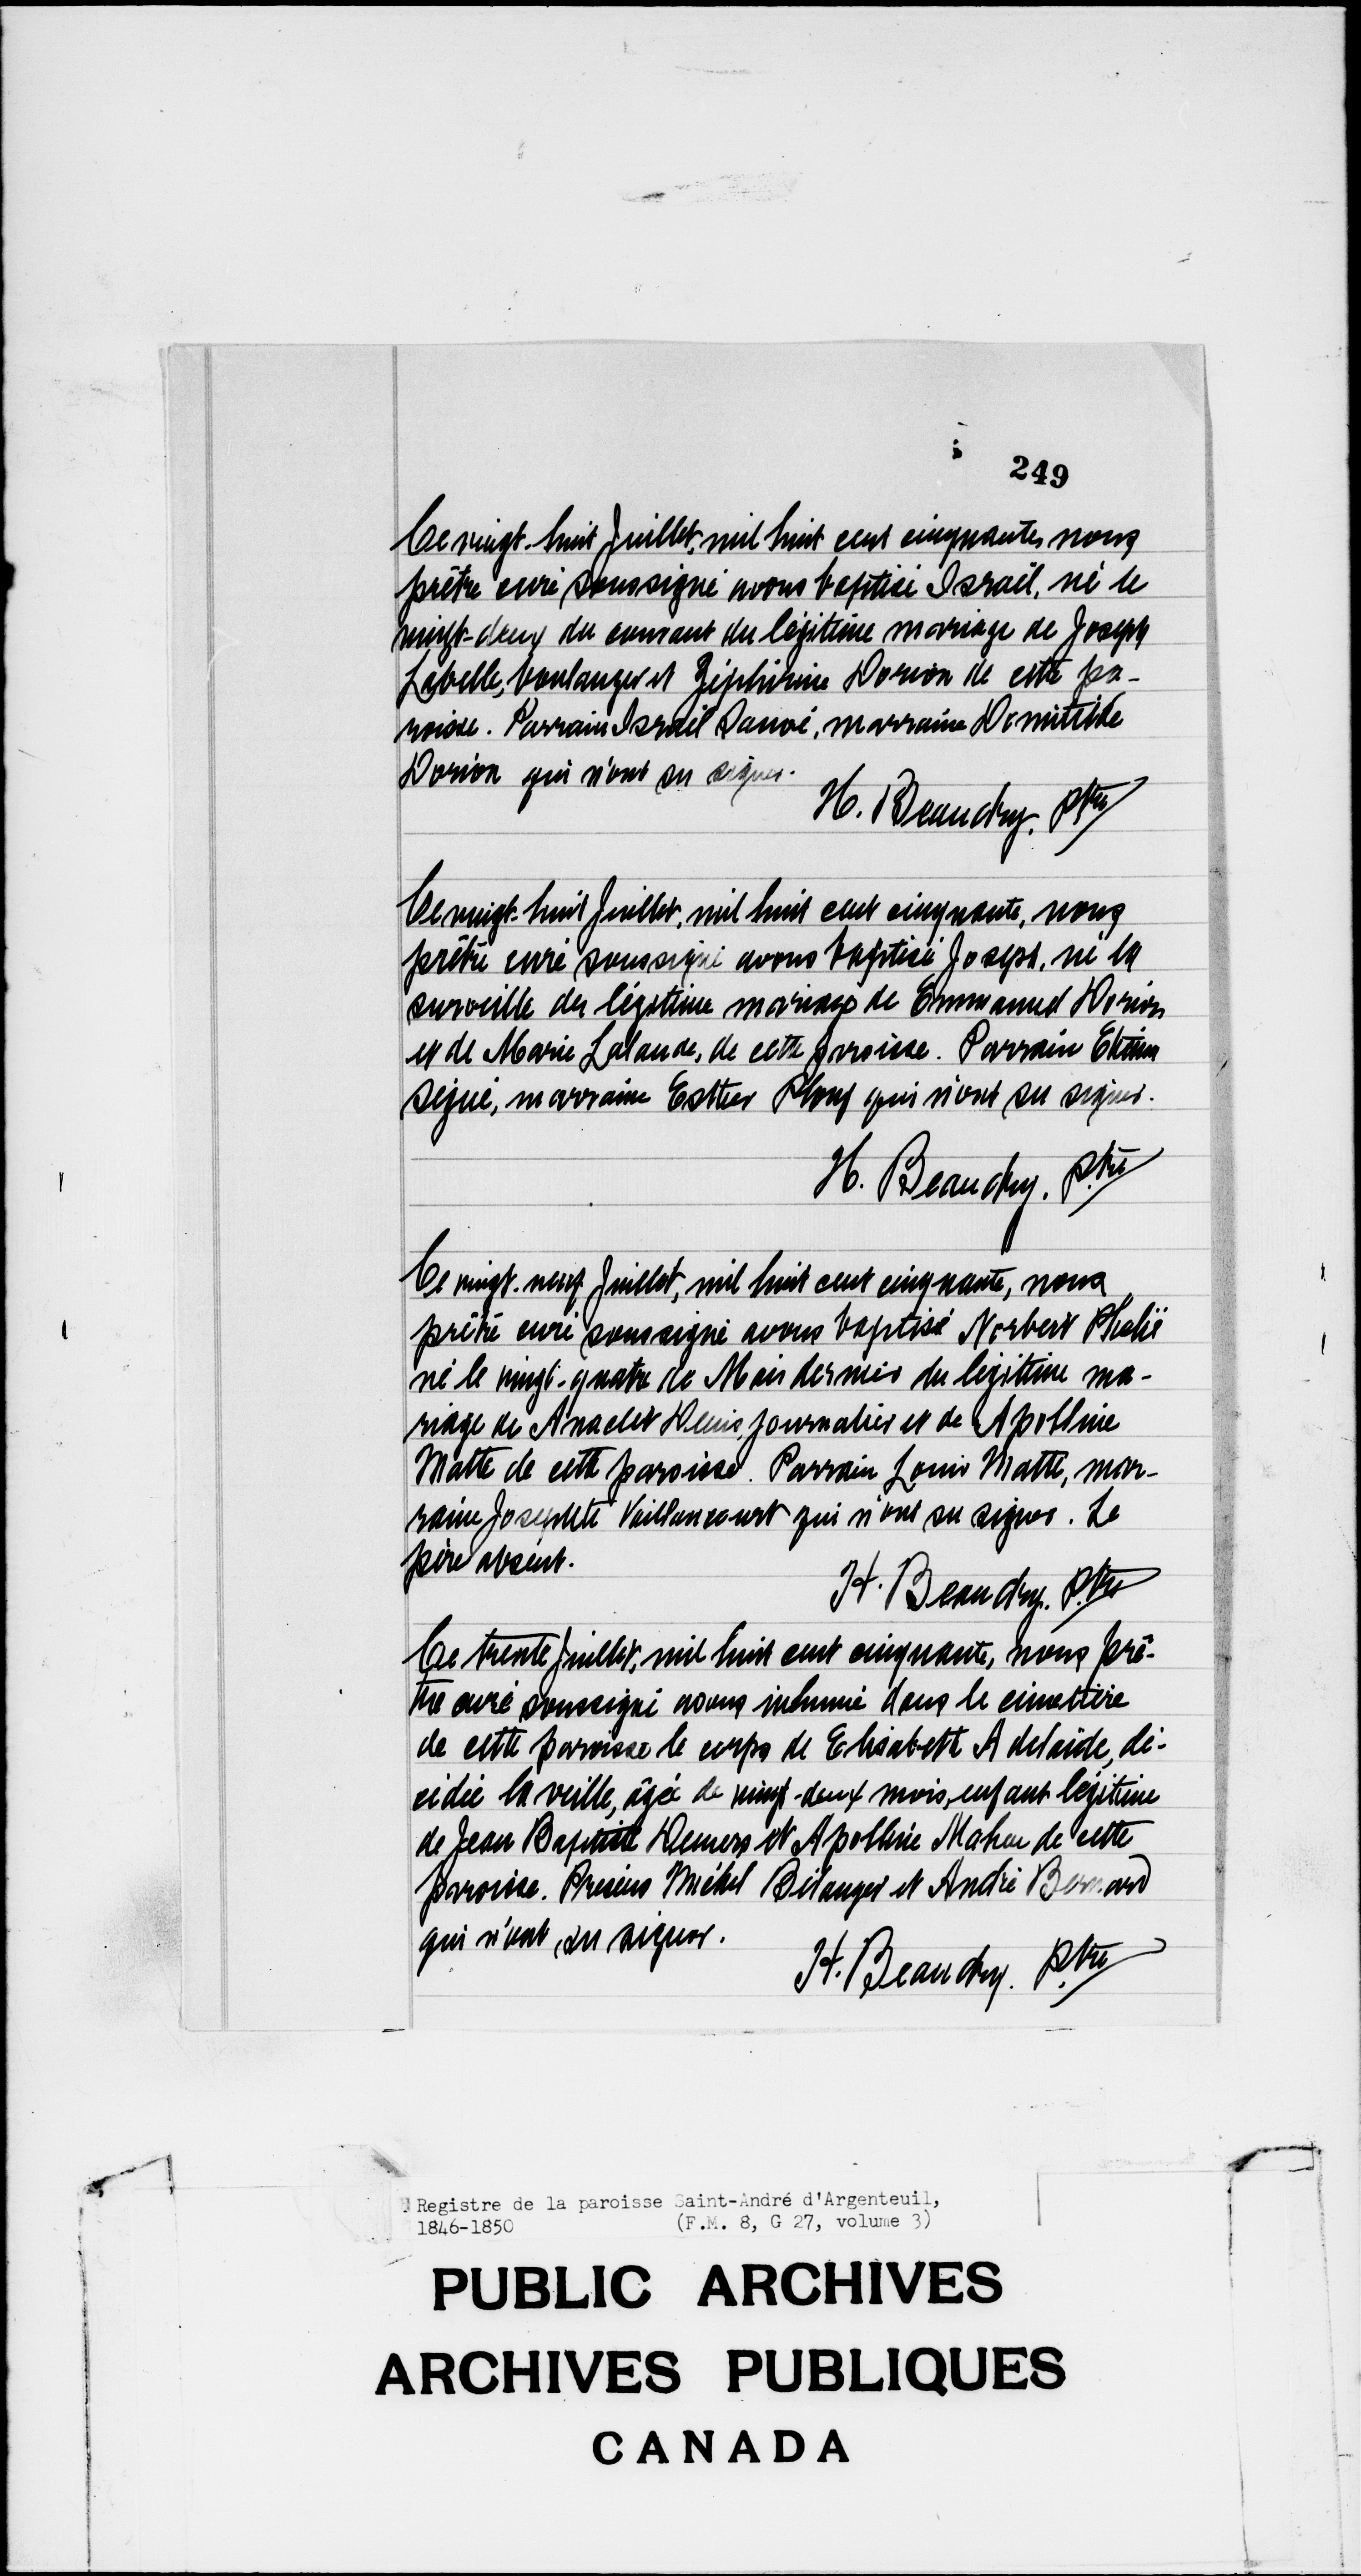 249
Ce vingt-huit Juillet, mil huit cent cinquante, nous
prêtre curé soussigné avons baptisé Israël, né le
vingt-deux du courant du légitime mariage de Joseph
Labelle, boulanger et Zéphirine Dorion de cette pa-
roisse. Parrain Israël marraine Domitilde
Dorion qui n'ont su signer.
H. Beaudry, ptre
Ce vingt-huit Juillet, mil huit cent cinquante, nous
prêtre curé soussigné avons baptisé Joseph, né la
surveille du légitime mariage de Emmanuel Dorion
et de Marie Lalande, de cette paroisse. Parrain Etienne
marraine Esther qui n'ont su signer.
H. Beaudry, ptre
Ce vingt-neuf Juillet, mil huit cent cinquante, nous
prêtre curé soussigné avons baptisé Norbert
né le vingt-quatre de Mai dernier du légitime ma-
riage de Anaclet Denis, journalier et de Apolline
Matte de cette paroisse. Parrain Louis Matte, mar-
raine Josephte Vaillancourt qui n'ont su signer. Le
père absent.
H. Beaudry, ptre
Ce trente Juillet, mil huit cent cinquante, nous prê-
tre curé soussigné avons inhumé dans le cimetière
de cette paroisse le corps de Elisabeth Adelaide, dé-
cédée la veille, âgée de vingt-deux mois, enfant légitime
de Jean Baptiste Demers et Apolline Maheu de cette
paroisse. Présens Michel Bélanger et André Bernard
qui n'ont su signer.
H. Beaudry, ptre
Registre de la paroisse Saint-André d'Argenteuil,
1846-1850 (F.M. 8, G 27, volume 3)
PUBLIC ARCHIVES
ARCHIVES PUBLIQUES
CANADA